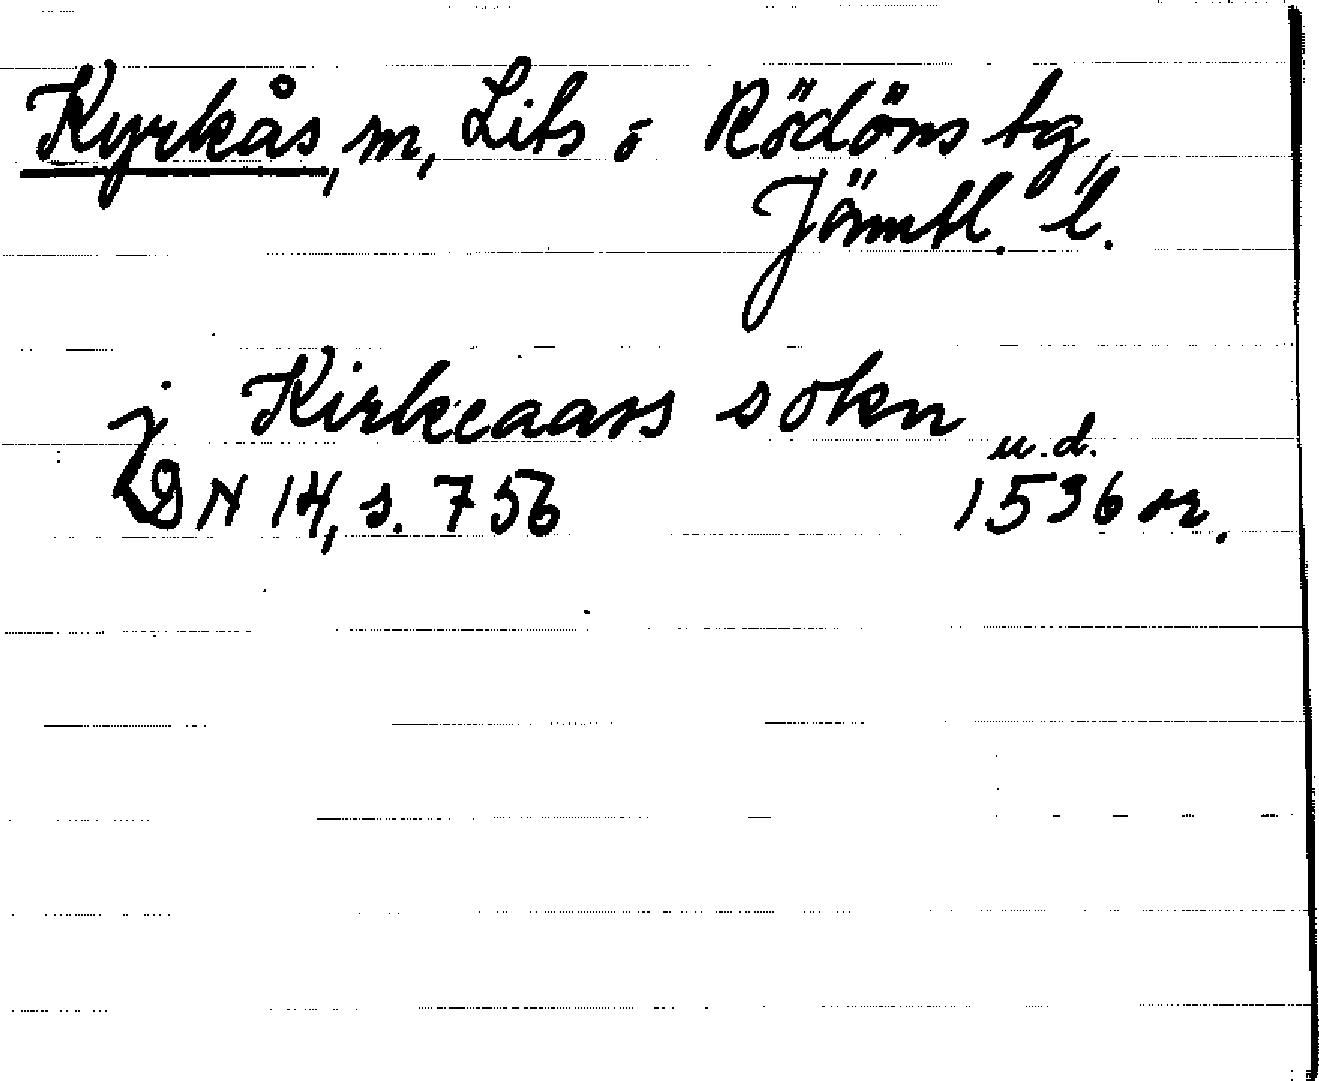 Kyrkås, sn, Lits o Rödöns tg,
Jämtl. l.
j Kirkeaass sokn
u.d.
DN 14, s. 756 1536 or.